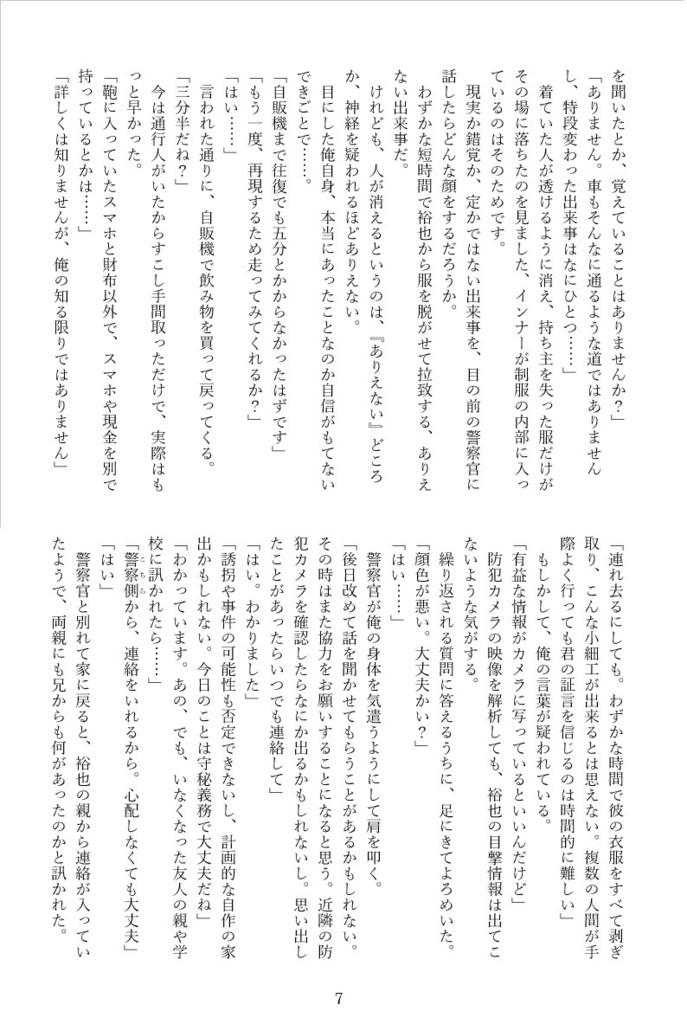 を聞いたとか、覚えていることはありませんか？」
「ありません。車もそんなに通るような道ではありません
し、特段変わった出来事はなにひとつ……」
　着ていた人が透けるように消え、持ち主を失った服だけが
その場に落ちたのを見ました、インナーが制服の内部に入っ
ているのはそのためです。
　現実か錯覚か、定かではない出来事を、目の前の警察官に
話したらどんな顔をするだろうか。
　わずかな短時間で裕也から服を脱がせて拉致する、ありえ
ない出来事だ。
　けれども、人が消えるというのは、『ありえない』どころ
か、神経を疑われるほどありえない。
　目にした俺自身、本当にあったことなのか自信がもてない
できごとで……。
「自販機まで往復でも五分とかからなかったはずです」
「もう一度、再現するため走ってみてくれるか？」
「はい……」
　言われた通りに、自販機で飲み物を買って戻ってくる。
「三分半だね？」
　今は通行人がいたからすこし手間取っただけで、実際はも
っと早かった。
「鞄に入っていたスマホと財布以外で、スマホや現金を別で
持っているとかは……」
「詳しくは知りませんが、俺の知る限りではありません」
「連れ去るにしても。わずかな時間で彼の衣服をすべて剥ぎ
取り、こんな小細工が出来るとは思えない。複数の人間が手
際よく行っても君の証言を信じるのは時間的に難しい」
　もしかして、俺の言葉が疑われている。
「有益な情報がカメラに写っているといいんだけど」
　防犯カメラの映像を解析しても、裕也の目撃情報は出てこ
ないような気がする。
　繰り返される質問に答えるうちに、足にきてよろめいた。
「顔色が悪い。大丈夫かい？」
「はい……」
　警察官が俺の身体を気遣うようにして肩を叩く。
「後日改めて話を聞かせてもらうことがあるかもしれない。
その時はまた協力をお願いすることになると思う。近隣の防
犯カメラを確認したらなにか出るかもしれないし。思い出し
たことがあったらいつでも連絡して」
「はい。わかりました」
「誘拐や事件の可能性も否定できないし、計画的な自作の家
出かもしれない。今日のことは守秘義務で大丈夫だね」
「わかっています。あの、でも、いなくなった友人の親や学
校に訊かれたら……」
「警察側こちらから、連絡をいれるから。心配しなくても大丈夫」
「はい」
　警察官と別れて家に戻ると、裕也の親から連絡が入ってい
たようで、両親にも兄からも何があったのかと訊かれた。
7